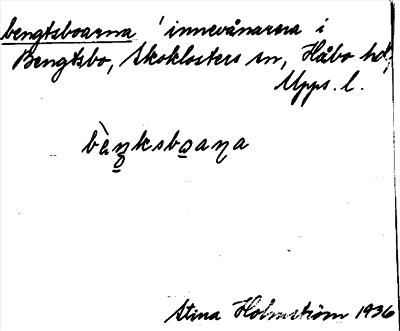 bengtsboarna ' innevånarna i
Bengtsbo, Skoklosters sn, Håbo hd,
Upps. l.
bàŋ̲ksbo̲aɳa
Stina Holmström 1936